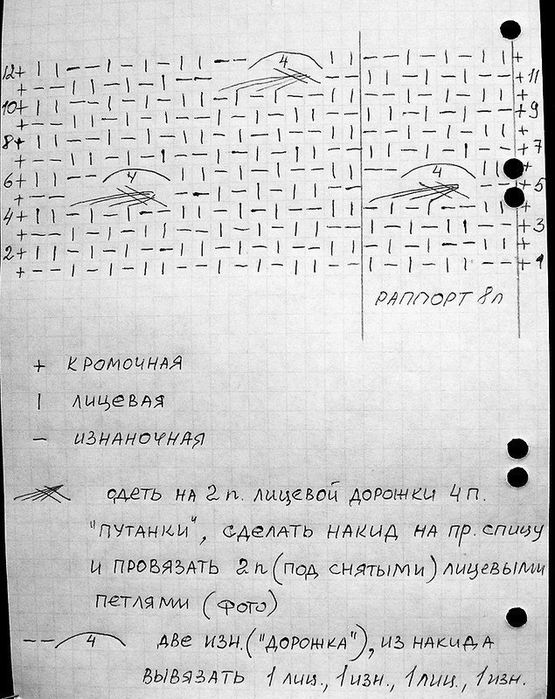 4
12+
+11
+
10+
+9
+
8+
+7
+
6+
4
4
+5
+
4+
+3
+
2+
+
+1
РАППОРТ 8п
+ КРОМОЧНАЯ
| ЛИЦЕВАЯ
– ИЗНАНОЧНАЯ
ОДЕТЬ НА 2 п. ЛИЦЕВОЙ ДОРОЖКИ 4 П.
"ПУТАНКИ", СДЕЛАТЬ НАКИД НА ПР. СПИЦУ
И ПРОВЯЗАТЬ 2 п (ПОД СНЯТЫМИ) ЛИЦЕВЫМИ
ПЕТЛЯМИ (ФОТО)
–– 4 ДВЕ ИЗН. ("ДОРОЖКА"), ИЗ НАКИДА
ВЫВЯЗАТЬ 1 ЛИЦ., 1 ИЗН., 1 ЛИЦ., 1 ИЗН.